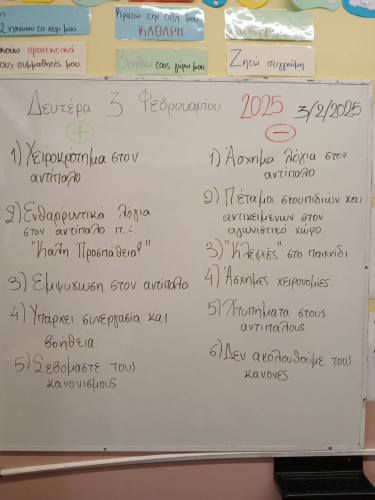 Σηκώνω το χέρι μου
Κρατώ την τάξη μου
ΚΑΘΑΡΗ
προσεκτικά
τους συμμαθητές μου
Βοηθάω τους γύρω μου
Ζητώ συγγνώμη
Δευτέρα 3 Φεβρουαρίου 2025 3/2/2025
+
1) Χειροκρότημα στον
αντίπαλο
2) Ενθαρρυντικά λόγια
στον αντίπαλο π.χ.
"Καλή Προσπάθεια!"
3) Εμψύχωση στον αντίπαλο
4) Υπάρχει συνεργασία και
βοήθεια
5) Σεβόμαστε τους
κανονισμους
−
1) Άσχημα λόγια στον
αντίπαλο
2) Πέταμα σκουπιδιών και
αντικειμένων στον
αγωνιστικό χώρο.
3) "Κλεψιές" στο παιχνίδι
4) Άσχημες χειρονομίες.
5) Χτυπήματα στους
αντιπάλους
6) Δεν ακολουθούμε τους
κανόνες.